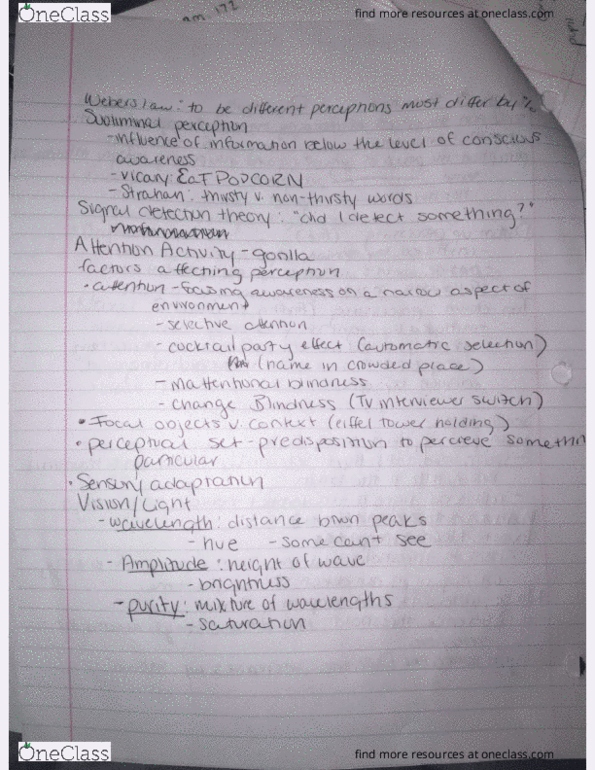 OneClass
find more resources at oneclass.com
am 172
Webers law: to be different perceptions must differ by %
Subliminal perception
-influence of information below the level of conscious
awareness
-vicary: EaT POPCORN
-Strahan: thirsty v. non-thirsty words
Signal detection theory: "did I detect something?"
Attention Activity-gorilla
factors affecting perception
• attention-focusing awareness on a narrow aspect of
environment
-selective attention
-cocktail party effect (automatic selection)
(name in crowded place)
-inattentional blindness
-change Blindness (TV interviewer switch)
• Focal objects v. context (eiffel tower holding)
• perceptual set-predisposition to percieve somethin
particular
• Sensory adaptation
Vision/Light
-wavelength: distance btwn peaks
-hue -some can't see
-Amplitude: height of wave
-brightness
-purity: mixture of wavelengths
-saturation
OneClass
find more resources at oneclass.com